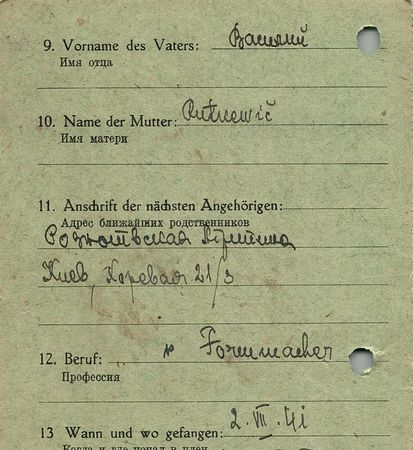 9. Vorname des Vaters: Василий
Имя отца
10. Name der Mutter: Rutkewič
Имя матери
11. Anschrift der nächsten Angehörigen:
Адрес ближайших родственников
Киев, 21/3
12. Beruf: Formmacher
Профессия
13 Wann und wo gefangen: 2. VIII. 41
Когда и где попал в плен